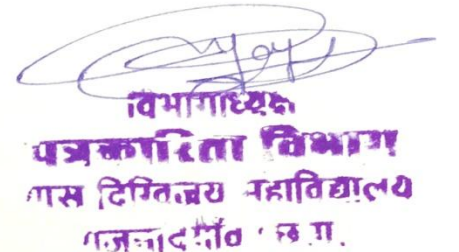 विभागाध्यक्ष
पत्रकारिता विभाग
शास दिग्विजय महाविद्यालय
राजनांदगाँव छ.ग.